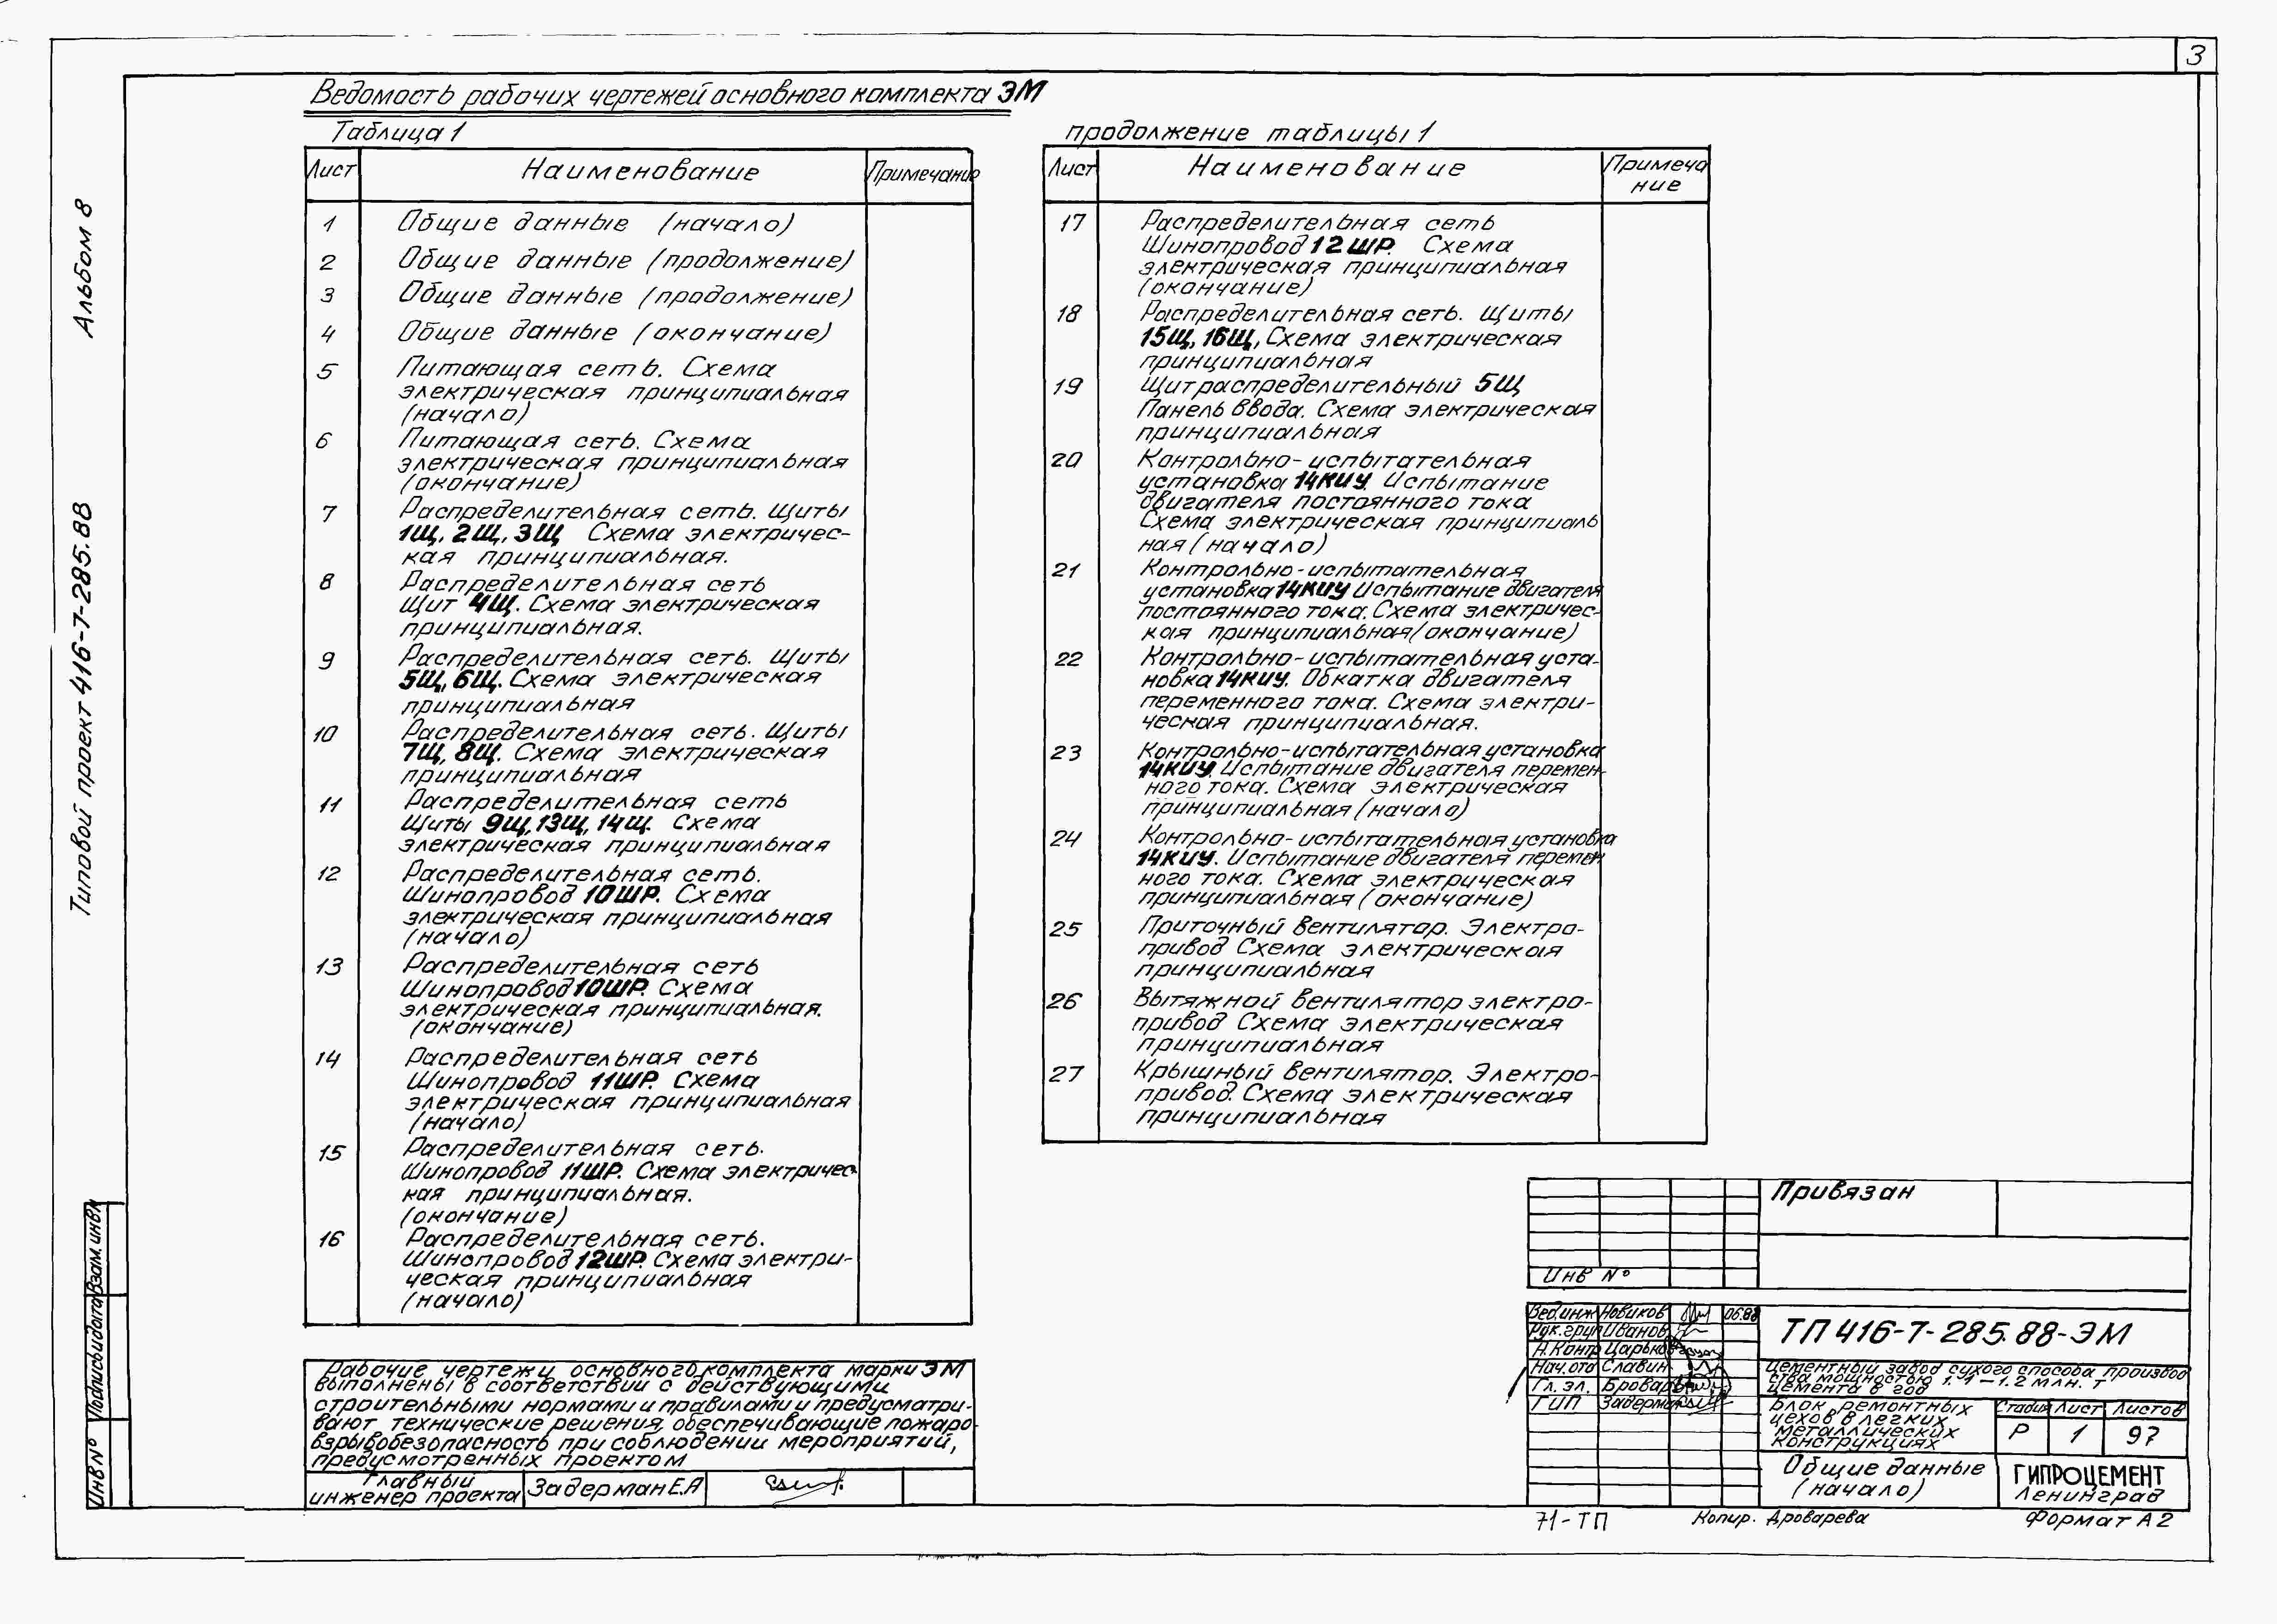 3
Альбом 8
Типовой проект 416-7-285.88
Ведомость рабочих чертежей основного комплекта ЭМ
Таблица 1
Лист Наименование Примечание
1 Общие данные (начало)
2 Общие данные (продолжение)
3 Общие данные (продолжение)
4 Общие данные (окончание)
5 Питающая сеть. Схема
электрическая принципиальная
(начало)
6 Питающая сеть. Схема
электрическая принципиальная
(окончание)
7 Распределительная сеть. Щиты
1Щ, 2Щ, 3Щ Схема электричес-
кая принципиальная.
8 Распределительная сеть
Щит 4Щ. Схема электрическая
принципиальная.
9 Распределительная сеть. Щиты
5Щ, 6Щ. Схема электрическая
принципиальная
10 Распределительная сеть. Щиты
7Щ, 8Щ. Схема электрическая
принципиальная
11 Распределительная сеть
Щиты 9Щ, 13Щ, 14Щ. Схема
электрическая принципиальная
12 Распределительная сеть.
Шинопровод 10ШР. Схема
электрическая принципиальная
(начало)
13 Распределительная сеть
Шинопровод 10ШР. Схема
электрическая принципиальная.
(окончание)
14 Распределительная сеть
Шинопровод 11ШР. Схема
электрическая принципиальная
(начало)
15 Распределительная сеть.
Шинопровод 11ШР. Схема электричес-
кая принципиальная.
(окончание)
16 Распределительная сеть.
Шинопровод 12ШР. Схема электри-
ческая принципиальная
(начало)
продолжение таблицы 1
Лист Наименование Примеча
ние
17 Распределительная сеть
Шинопровод 12ШР. Схема
электрическая принципиальная
(окончание)
18 Распределительная сеть. Щиты
15Щ, 16Щ, Схема электрическая
принципиальная
19 Щит распределительный 5Щ
Панель ввода. Схема электрическая
принципиальная
20 Контрольно-испытательная
установка 14КИУ. Испытание
двигателя постоянного тока
Схема электрическая принципиаль
ная (начало)
21 Контрольно-испытательная
установка 14КИУ Испытание двигателя
постоянного тока. Схема электричес-
кая принципиальная (окончание)
22 Контрольно-испытательная уста-
новка 14КИУ. Обкатка двигателя
переменного тока. Схема электри-
ческая принципиальная.
23 Контрольно-испытательная установка
14КИУ. Испытание двигателя перемен-
ного тока. Схема электрическая
принципиальная (начало)
24 Контрольно-испытательная установка
14КИУ. Испытание двигателя перемен
ного тока. Схема электрическая
принципиальная (окончание)
25 Приточный вентилятор. Электро-
привод Схема электрическая
принципиальная
26 Вытяжной вентилятор электро-
привод Схема электрическая
принципиальная
27 Крышный вентилятор. Электро-
привод. Схема электрическая
принципиальная
Рабочие чертежи основного комплекта марки ЭМ
выполнены в соответствии с действующими
строительными нормами и правилами и предусматри-
вают технические решения, обеспечивающие пожаро-
взрывобезопасность при соблюдении мероприятий,
предусмотренных проектом
Главный
инженер проекта Задерман Е.Я
Взам. инв №
Подпись и дата
Инв №
Привязан
Инв №
Вед.инж Новиков 06.88
Рук.груп Иванов
Н.Контр Царьков
Нач.отд Славин
Гл. эл.
ГИП Задерман
ТП 416-7-285.88-ЭМ
Цементный завод сухого способа производ
ства мощностью 1.1-1.2 млн. т
цемента в год
Блок ремонтных
цехов в легких
металлических
конструкциях
Стадия Лист Листов
Р 1 97
Общие данные
(начало)
ГИПРОЦЕМЕНТ
Ленинград
71-ТП Копир. Дроварева Формат А2